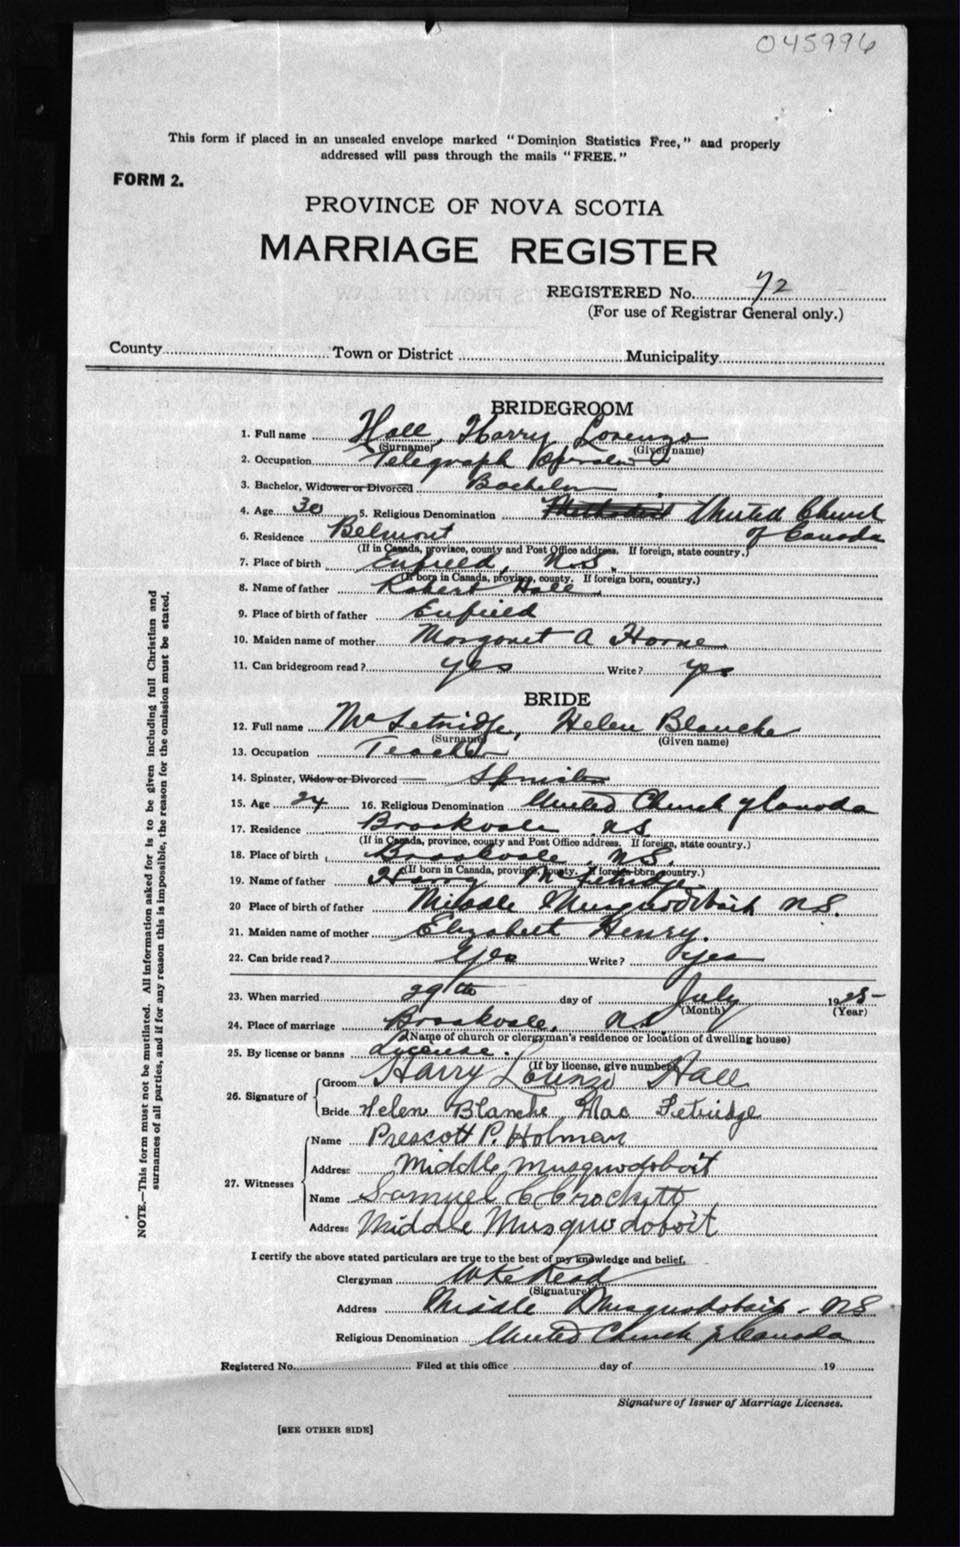 045996
This form if placed in an unsealed envelope marked "Dominion Statistics Free," and properly
addressed will pass through the mails "FREE."
FORM 2.
PROVINCE OF NOVA SCOTIA
MARRIAGE REGISTER
REGISTERED No. 72
(For use of Registrar General only.)
County Town or District Municipality
BRIDEGROOM
1. Full name Hall, Harry, Lorenzo
(Surname) (Given name)
2. Occupation Telegraph Operator
3. Bachelor, Widower or Divorced Bachelor
4. Age 30 5. Religious Denomination Methodist United Church
of Canada
6. Residence Belmont
(If in Canada, province, county and Post Office address. If foreign, state country.)
7. Place of birth Enfield, N.S.
(If born in Canada, province, county. If foreign born, country.)
8. Name of father Robert Hall
9. Place of birth of father Enfield
10. Maiden name of mother Margaret A Horne
11. Can bridegroom read? yes Write? yes
BRIDE
12. Full name McFetridge, Helen Blanche
(Surname) (Given name)
13. Occupation Teacher
14. Spinster, Widow or Divorced Spinster
15. Age 24 16. Religious Denomination United Church of Canada
17. Residence Brookvale N.S
(If in Canada, province, county and Post Office address. If foreign, state country.)
18. Place of birth Brookvale, N.S.
(If born in Canada, province, county. If foreign born, country.)
19. Name of father Harry McFetridge
20 Place of birth of father Middle Musquodoboit N.S.
21. Maiden name of mother Elizabeth Henry.
22. Can bride read? Yes Write? Yes
23. When married 29th day of July 1925
(Month) (Year)
24. Place of marriage Brookvale, N.S
(Name of church or clergyman's residence or location of dwelling house)
25. By license or banns License.
(If by license, give number)
26. Signature of Groom Harry Lorenzo Hall
Bride Helen Blanche Mac Fetridge
27. Witnesses Name Prescott P. Holman
Address Middle Musquodoboit
Name Samuel C Crockett
Address Middle Musquodoboit
I certify the above stated particulars are true to the best of my knowledge and belief.
Clergyman Read
(Signature)
Address Middle Musquodoboit - N.S
Religious Denomination United Church of Canada
Registered No. Filed at this office day of 19
Signature of Issuer of Marriage Licenses.
[SEE OTHER SIDE]
NOTE.—This form must not be mutilated. All information asked for is to be given including full Christian and
surnames of all parties, and if for any reason this is impossible, the reason for the omission must be stated.